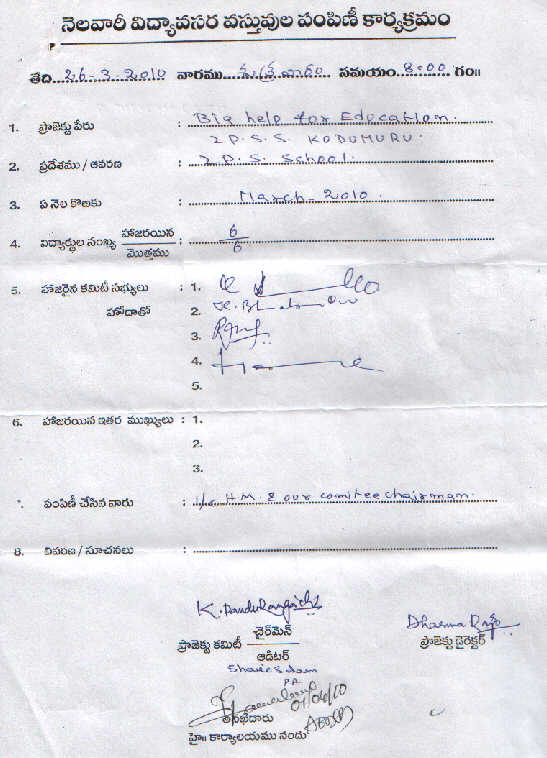 నెలవారీ విద్యావసర వస్తువుల పంపిణీ కార్యక్రమం
తేది...26-3-2010 వారము...శుక్రవారం సమయం..8:00 గం॥
1. ప్రాజెక్టు పేరు : Big help for Education.
Z P. S. S. KODUMURU.
2. ప్రదేశము / ఆవరణ : Z P. S. School.
3. ఏ నెల కొఱకు : March-2010.
4. విద్యార్థుల సంఖ్య హాజరయిన / మొత్తము : 6/6
5. హాజరైన కమిటీ సభ్యులు : 1.
హోదాతో 2.
3.
4.
5.
6. హాజరయిన ఇతర ముఖ్యులు : 1.
2.
3.
పంపిణీ చేసిన వారు : HM & our comitee chairman.
8. వివరణ / సూచనలు :
K. Panduranga Dharma
ప్రాజెక్టు కమిటీ చైర్‌మెన్ ప్రాజెక్టు డైరెక్టర్
ఆడిటర్
01/04/10
తనిఖీదారు
హై॥ కార్యాలయము నందు